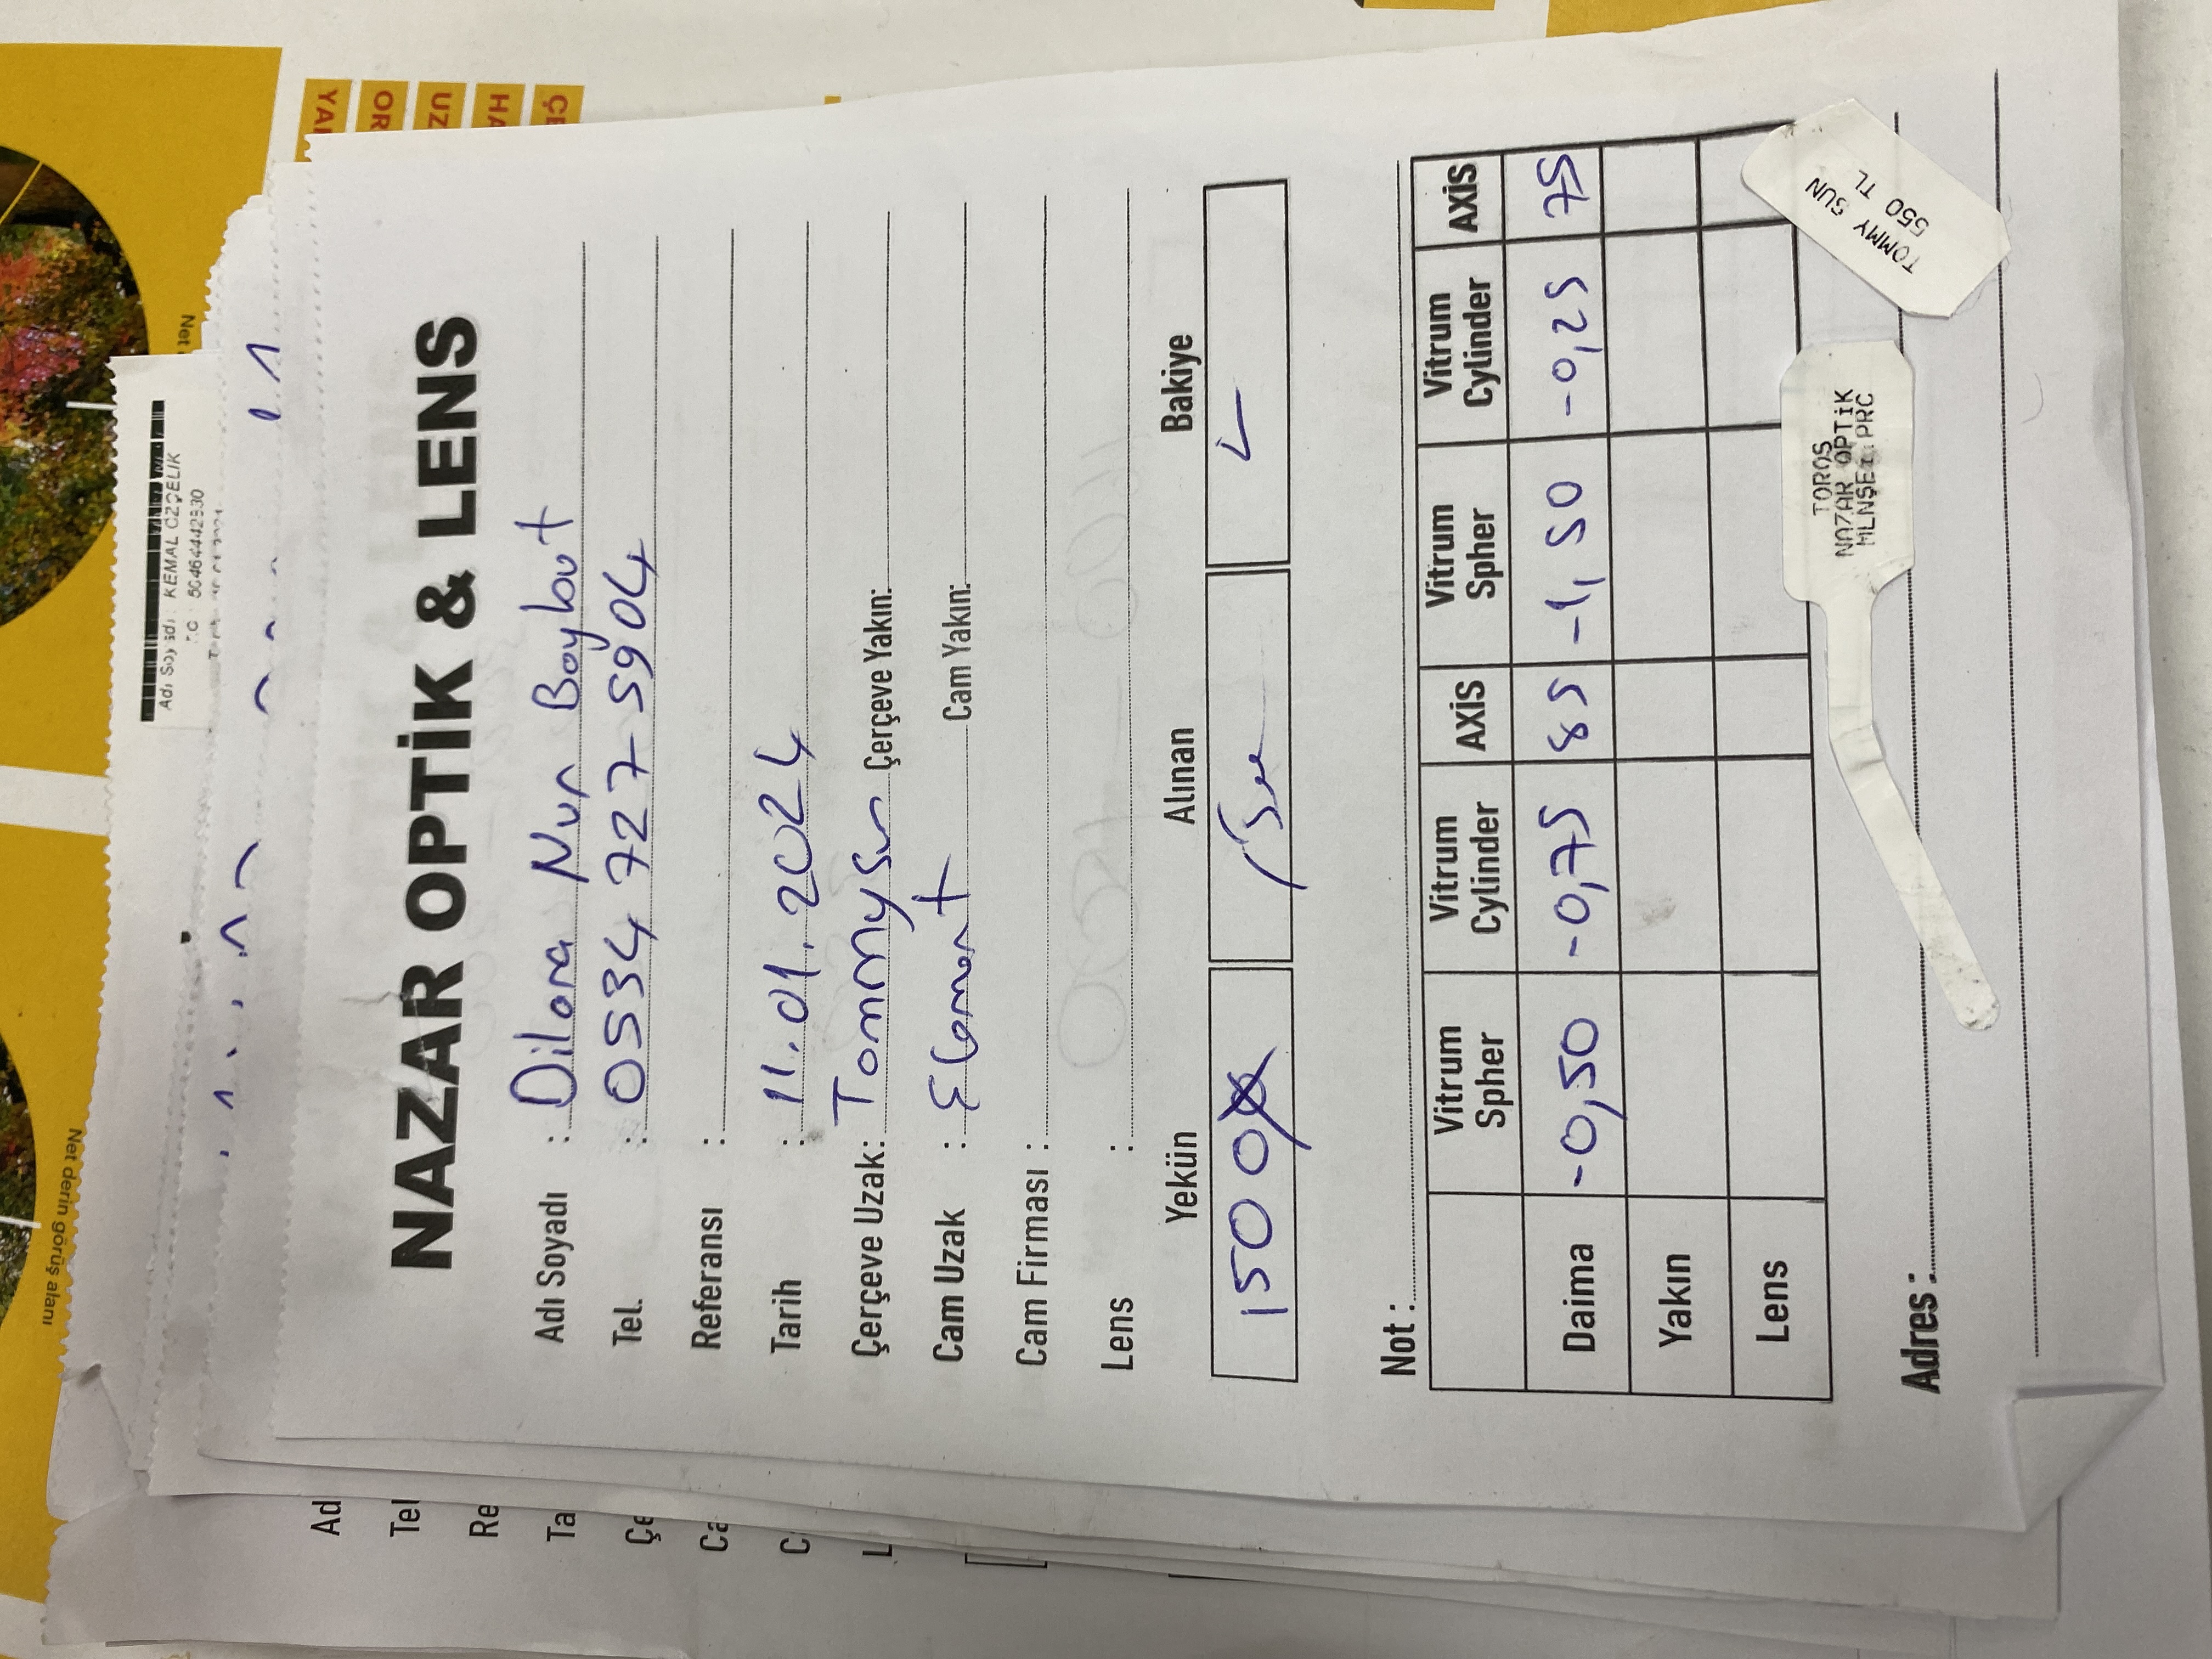 Net derin görüş alanı
Net
Adı Soyadı : KEMAL ÖZÇELİK
YA
OR
UZ
HA
ÇE
Ad
Tel
Re
Ta
Çe
Ca
C
L
NAZAR OPTİK & LENS
Adı Soyadı : Dilara Nur Baybut
Tel. : 0534 727 5904
Referansı :
Tarih : 11.01.2024
Çerçeve Uzak: Tommy Sun Çerçeve Yakın:
Cam Uzak : Element Cam Yakın:
Cam Firması :
Lens :
Yekün Alınan Bakiye
1500
Not :
Vitrum Spher Vitrum Cylinder AXİS Vitrum Spher Vitrum Cylinder AXİS
Daima -0,50 -0,75 85 -1,50 -0,25 75
Yakın
Lens
TOROS
NAZAR OPTİK
PRC
TOMMY SUN
550 TL
Adres :